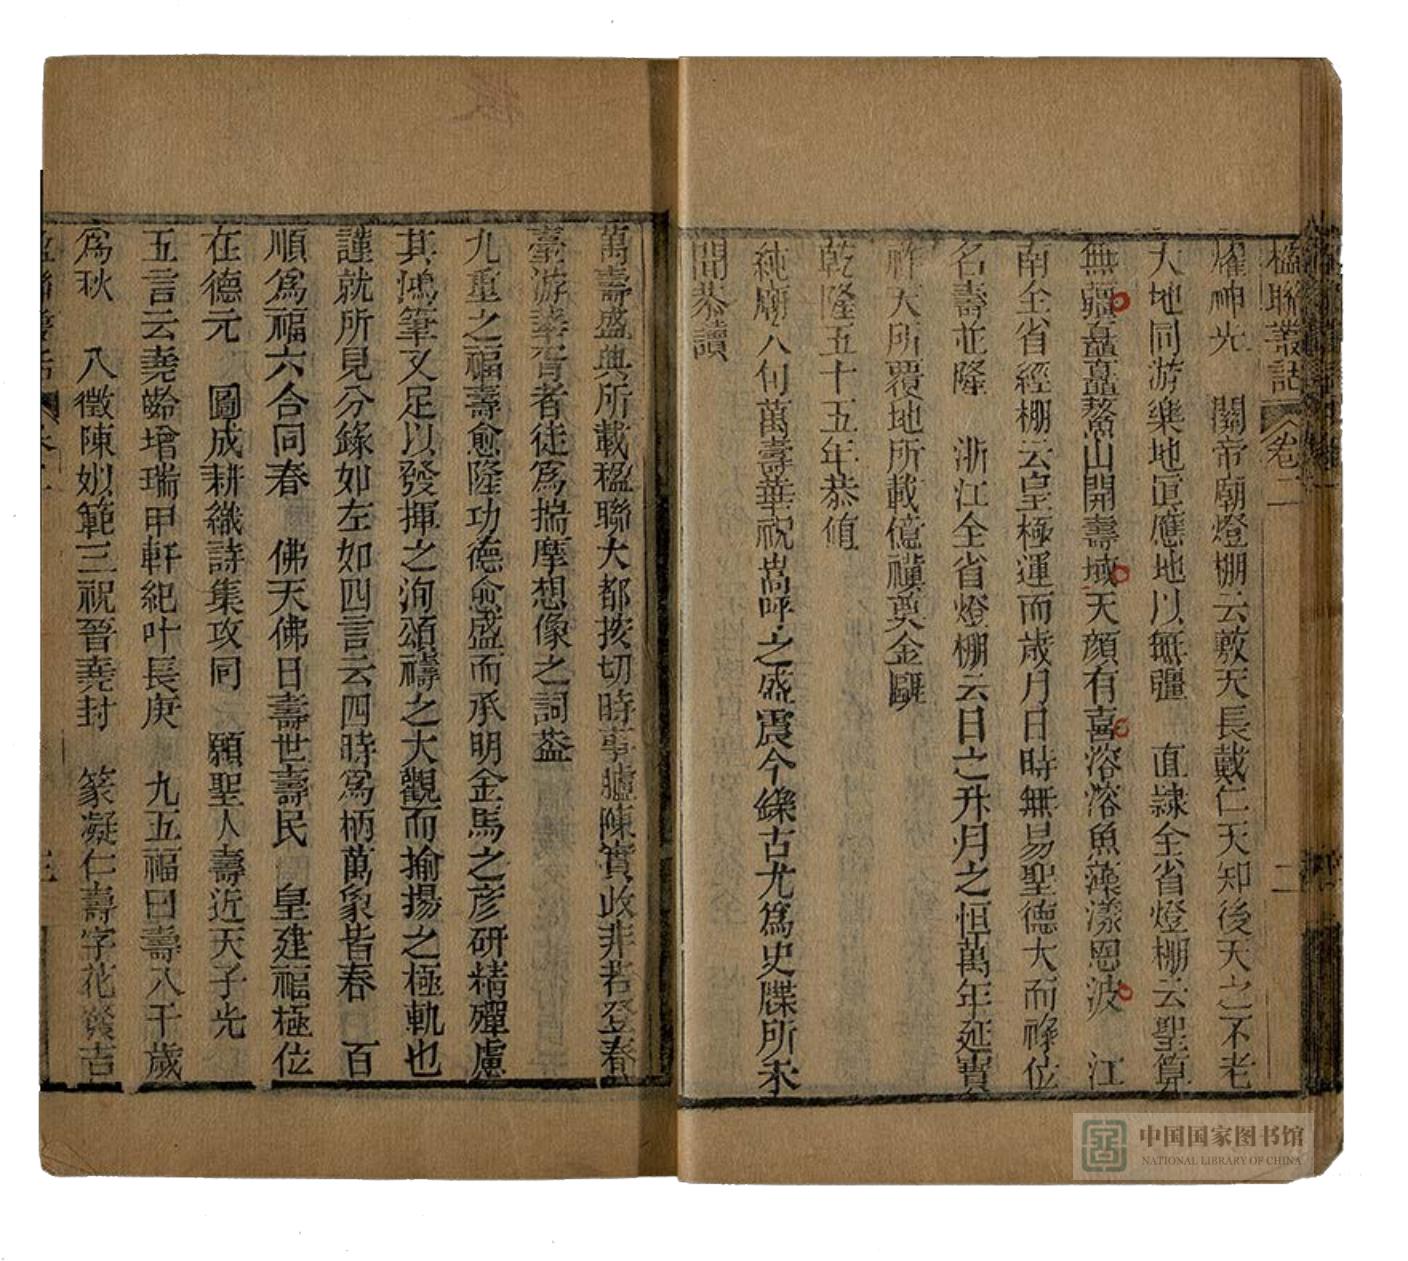 楹聯叢話 卷二 二
燿神光 關帝廟燈棚云敷天長戴仁天知後天之不老
大地同游樂地宜應地以無疆 直隸全省燈棚云聖算
無疆矗矗鰲山開壽域天顏有喜溶溶魚藻漾恩波 江
南全省經棚云皇極運而歲月日時無易聖德大而祿位
名壽並隆 浙江全省燈棚云日之升月之恒萬年延寶
祚天所覆地所載億禩奠金甌
乾隆五十五年恭値
純廟八旬萬壽華祝嵩呼之盛震今鑠古尤爲史牒所未
聞恭讀
萬壽盛典所載楹聯大都按切時事臚陳實政非若登春
臺游華胥者徒爲揣摩想像之詞葢
九重之福壽愈隆功德愈盛而承明金馬之彥研精殫慮
其鴻筆又足以發揮之洵頌禱之大觀而揄揚之極軌也
謹就所見分錄如左如四言云四時爲柄萬象皆春 百
順爲福六合同春 佛天佛日壽世壽民 皇建福極位
在德元 圖成耕織詩集攻同 願聖人壽近天子光
五言云堯齡增瑞甲軒紀叶長庚 九五福曰壽八千歲
爲秋 八徵陳姒範三祝晉堯封 篆凝仁壽字花發吉
三
中国国家图书馆
NATIONAL LIBRARY OF CHINA